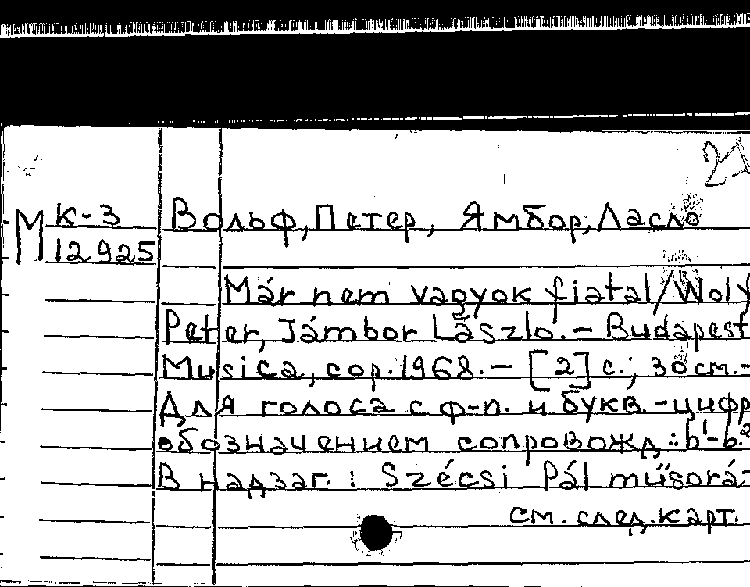 21
М К-3
12925
Вольф, Петер, Ямбор, Ласло
Már nem vagyok fiatal/Wolf
Peter, Jámbor László.- Budapest
Musica, cop. 1968.- [2] с.; 30 см.-
Для голоса с ф-п. и букв.-цифр
обозначением сопровожд.: b¹-b²
В надзаг.: Szécsi Pál műsorá-
см. след. карт.